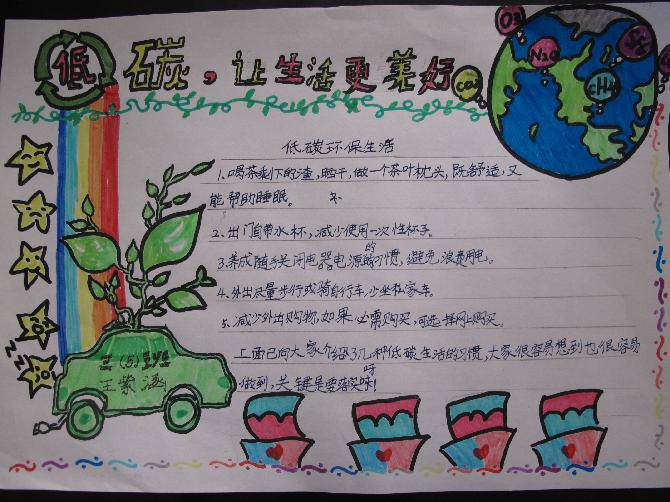 低碳，让生活更美好
O3
N2O
CO2
CH4
低碳环保生活
1.喝茶剩下的渣，晒干，做一个茶叶枕头，既舒适，又
能帮助睡眠。
2.出门自带水杯，减少使用一次性杯子。
3.养成随手关闭电器电源的习惯，避免浪费用电。
4.外出尽量步行或骑自行车，少坐私家车。
5.减少外出购物，如果必需购买，可选择网上购买。
上面已向大家介绍了几种低碳生活的习惯，大家很容易想到也很容易
做到，关键是要落实呀！
王紫涵